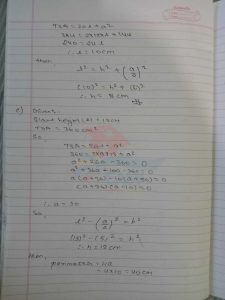 TSA = 2al + a²
384 = 2x12xl + 144
240 = 24 l
∴ l = 10cm
then,
l² = h² + (a/2)²
(10)² = h² + (6)²
∴ h = 8 cm
c) Given:-
Slant height (l) = 13cm
TSA = 360 cm²
So,
TSA = 2al + a²
360 = 2xax13 + a²
a² + 26a - 360 = 0
a² + 36a - 10a - 360 = 0
a(a+36) - 10(a+36) = 0
(a+36)(a-10) = 0
∴ a = 10
So,
l² - (a/2)² = h²
(13)² - (5)² = h²
∴ h = 12cm
then, perimeter = 4a
= 4x10 = 40 cm